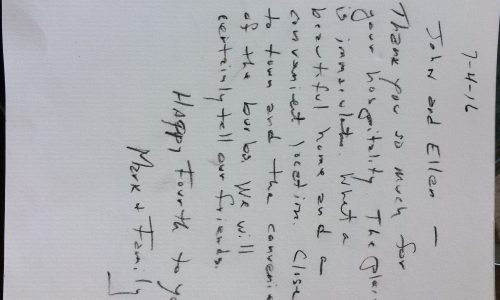 7-4-16
John and Ellen —
Thank you so much for
your hospitality. The plac
is immaculate. What a
beautiful home and a
convenient location. Close
to town and the convenie
of the burbs. We will
certainly tell our friends.
Happy Fourth to yo
Mark + Family